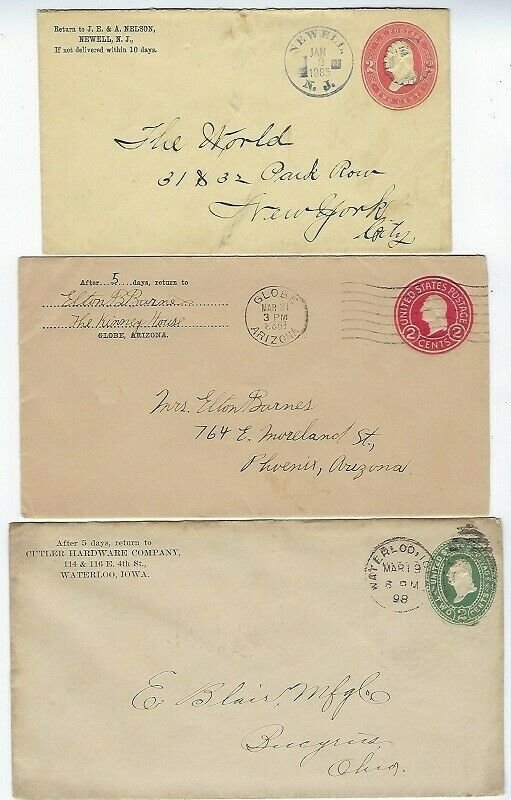 Return to J. E. & A. NELSON,
NEWELL, N. J.,
If not delivered within 10 days.
NEWELL,
JAN
9
1885
N. J.
U.S. POSTAGE
TWO CENTS
The World
31 & 32 Park Row
New York
City
After 5 days, return to
Elton B. Burnes
The Kinney House
GLOBE, ARIZONA.
GLOBE
MAR 31
3 PM
ARIZONA
UNITED STATES POSTAGE
2 CENTS 2
Mrs. Elton Barnes
764 E. Moreland St,
Phoenix, Arizona.
After 5 days, return to
CUTLER HARDWARE COMPANY,
114 & 116 E. 4th St.,
WATERLOO, IOWA.
WATERLOO, IO
MAR 19
6 PM
98
UNITED
TWO 2 CENTS
E Blair Mfg Co
Bucyrus,
Ohio.